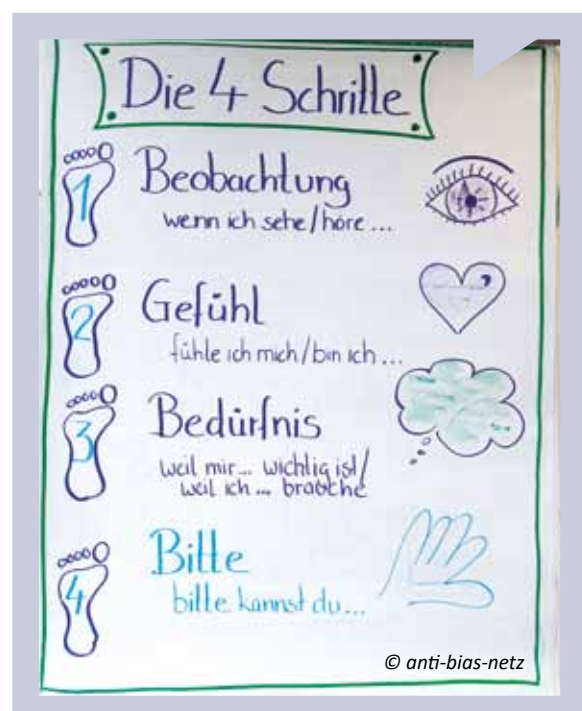 Die 4 Schritte
1 Beobachtung
wenn ich sehe/höre ...
2 Gefühl
fühle ich mich/bin ich ...
3 Bedürfnis
weil mir ... wichtig ist/
weil ich ... brauche
4 Bitte
bitte kannst du ...
© anti-bias-netz